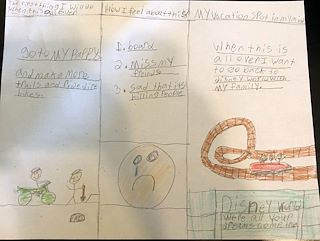 The first thing I will do
when this is all over
go to MY PoPPys
and make more
trails and ride dirt
bikes.
How I feel about this
1. board
2. Miss my
friends
3. sad that its
killing People
MY vacation SPot in my mind
When this is
all over I want
to go back to
disney world with
MY family.
DiSNEY World
Were all your
dreams come true